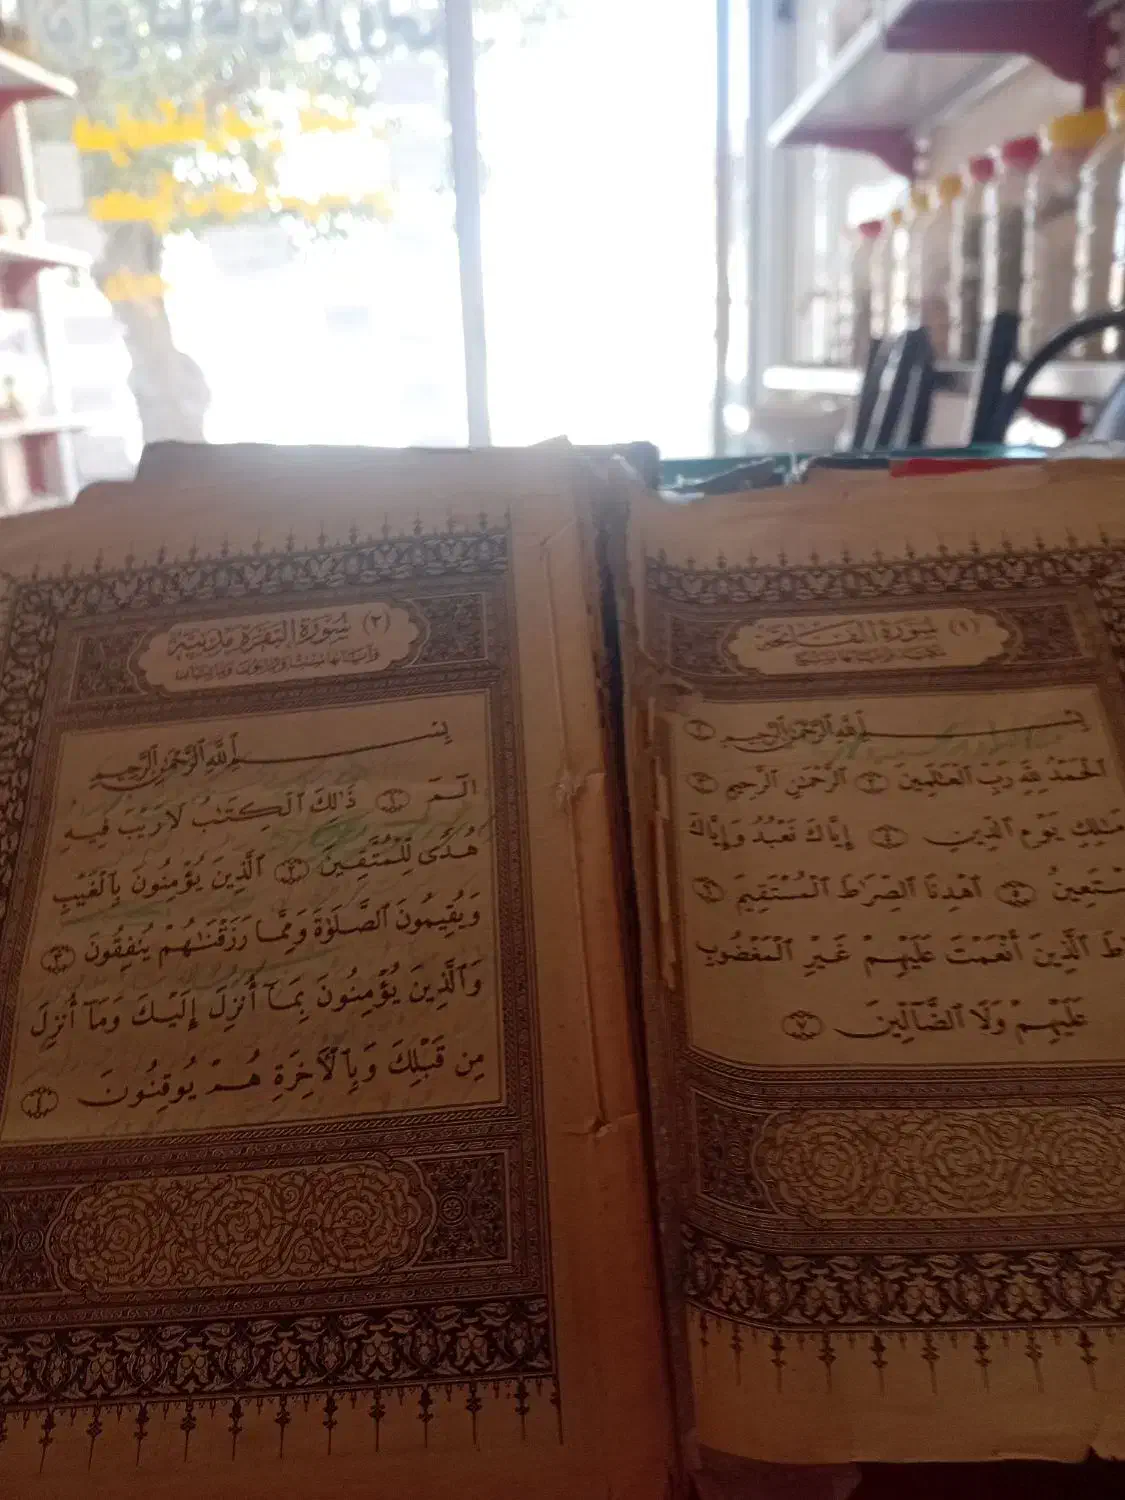 (١) سُورَةُ الفَاتِحَةِ
بِسْمِ ٱللَّهِ ٱلرَّحْمَٰنِ ٱلرَّحِيمِ ١
ٱلْحَمْدُ لِلَّهِ رَبِّ ٱلْعَٰلَمِينَ ٢ ٱلرَّحْمَٰنِ ٱلرَّحِيمِ ٣
مَٰلِكِ يَوْمِ ٱلدِّينِ ٤ إِيَّاكَ نَعْبُدُ وَإِيَّاكَ
نَسْتَعِينُ ٥ ٱهْدِنَا ٱلصِّرَٰطَ ٱلْمُسْتَقِيمَ ٦
صِرَٰطَ ٱلَّذِينَ أَنْعَمْتَ عَلَيْهِمْ غَيْرِ ٱلْمَغْضُوبِ
عَلَيْهِمْ وَلَا ٱلضَّآلِّينَ ٧
(٢) سُورَةُ البَقَرَةِ مَدَنِيَّة
وَآيَاتُهَا سِتٌّ وَثَمَانُونَ وَمِائَتَانِ
بِسْمِ ٱللَّهِ ٱلرَّحْمَٰنِ ٱلرَّحِيمِ
الٓمٓ ١ ذَٰلِكَ ٱلْكِتَٰبُ لَا رَيْبَ فِيهِ
هُدًى لِّلْمُتَّقِينَ ٢ ٱلَّذِينَ يُؤْمِنُونَ بِٱلْغَيْبِ
وَيُقِيمُونَ ٱلصَّلَوٰةَ وَمِمَّا رَزَقْنَٰهُمْ يُنفِقُونَ ٣
وَٱلَّذِينَ يُؤْمِنُونَ بِمَآ أُنزِلَ إِلَيْكَ وَمَآ أُنزِلَ
مِن قَبْلِكَ وَبِٱلْأَخِرَةِ هُمْ يُوقِنُونَ ٤